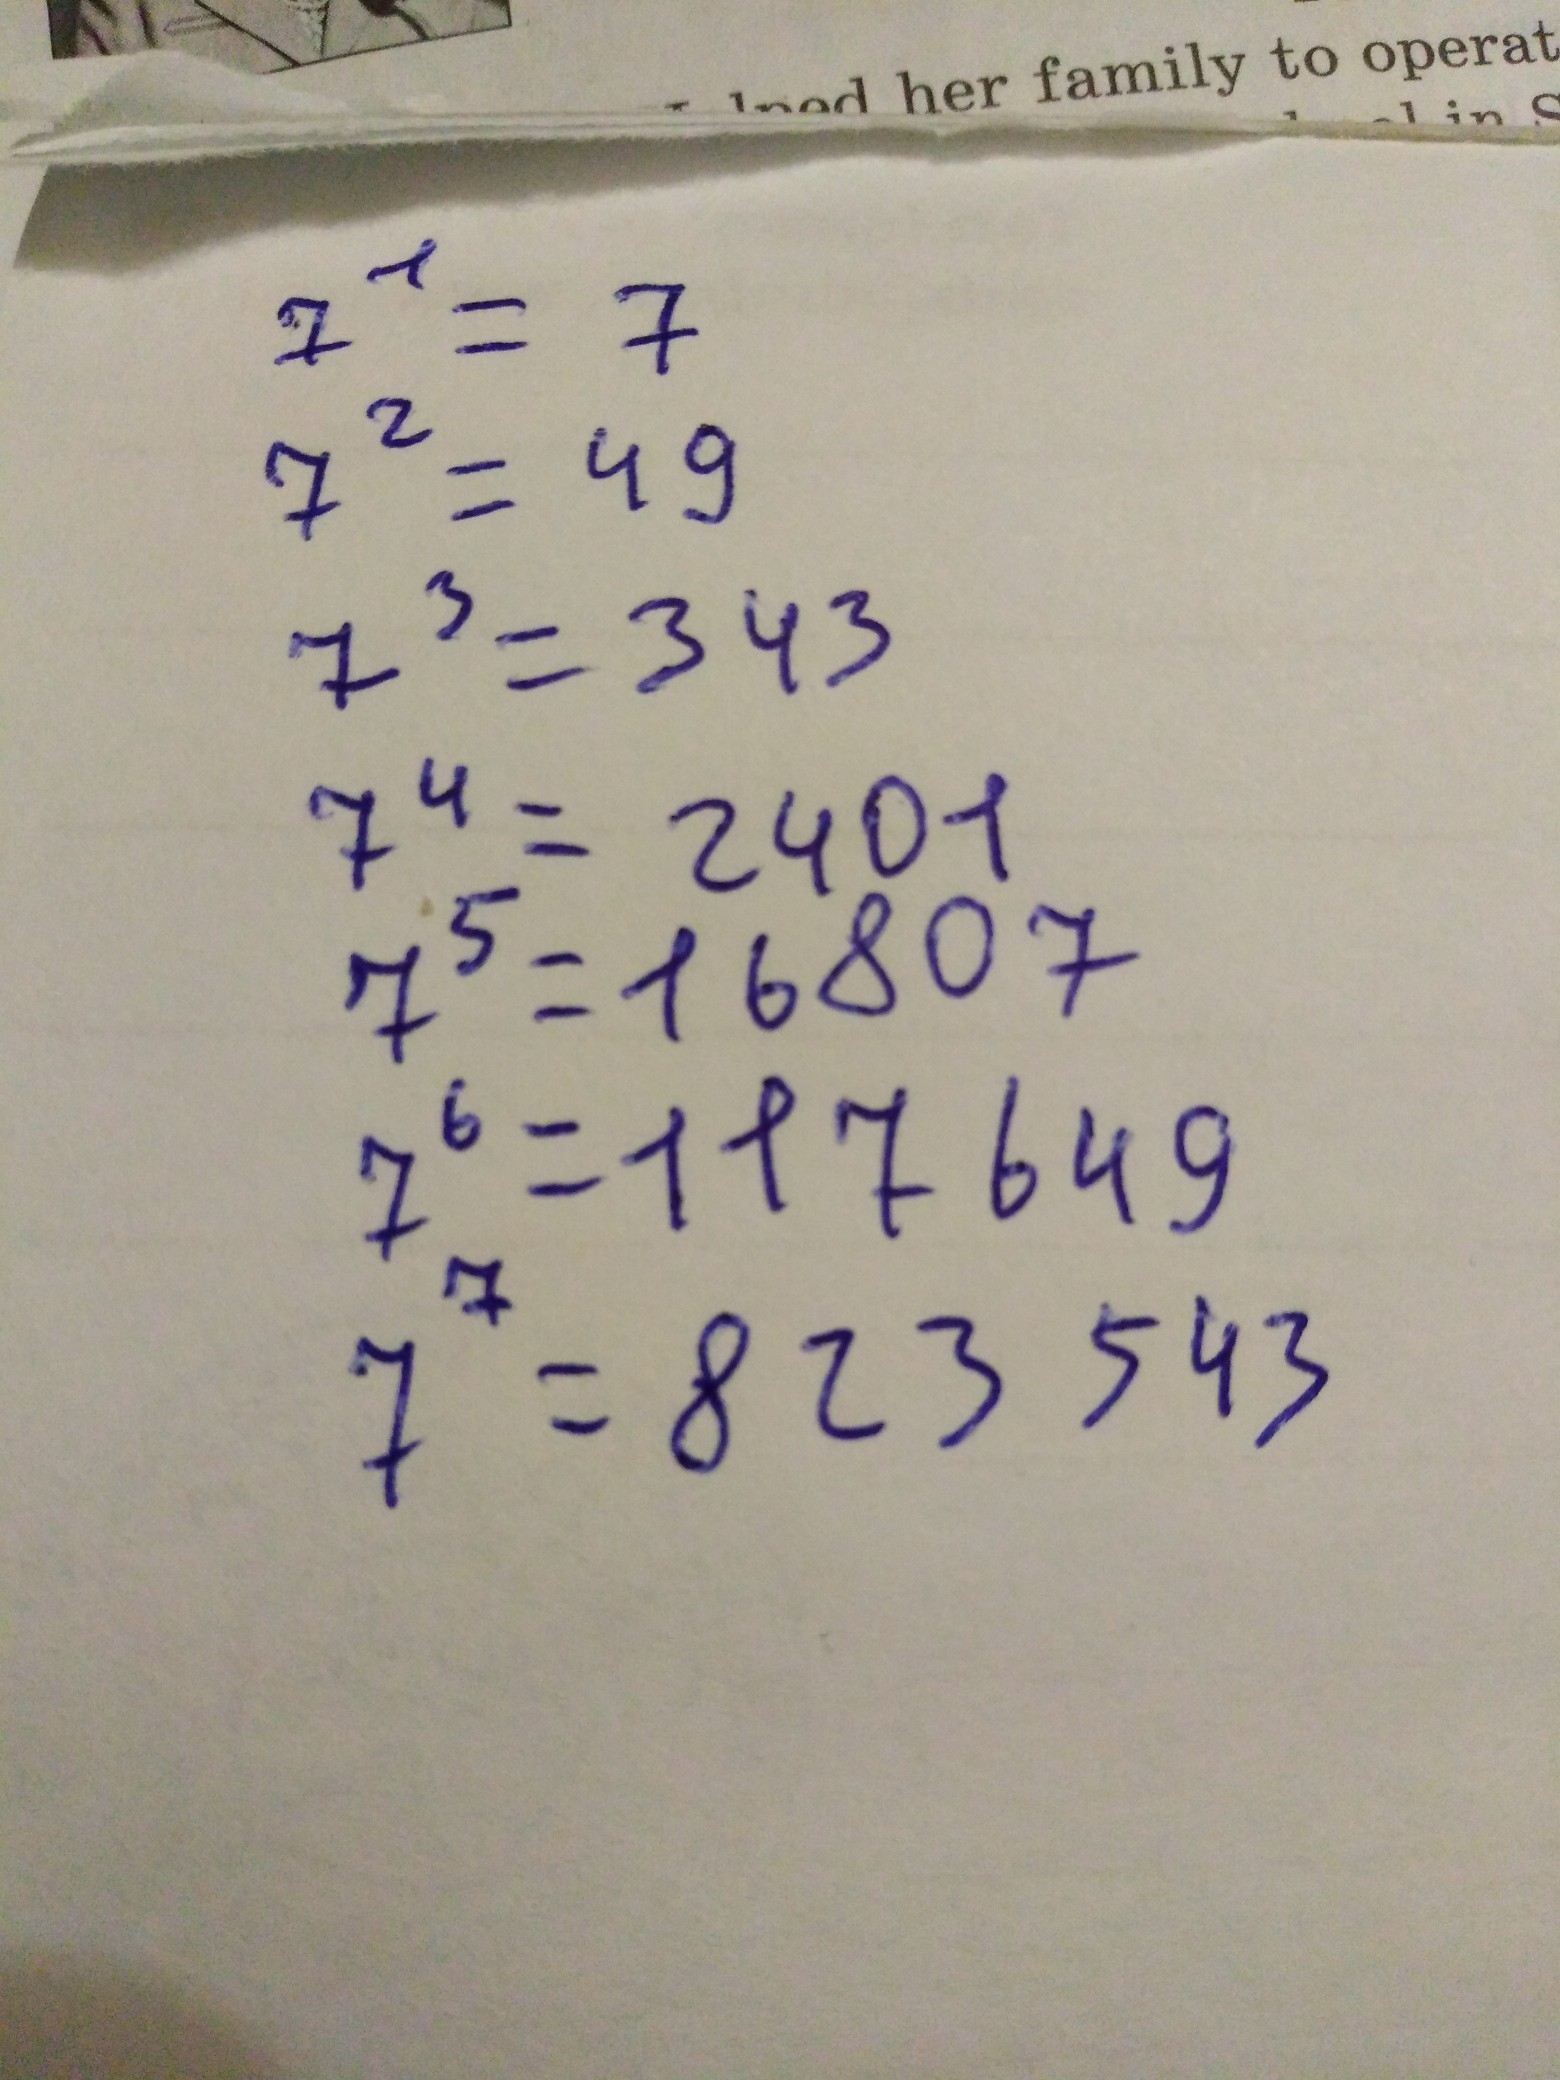 her family to operat
in S
7¹ = 7
7² = 49
7³ = 343
7⁴ = 2401
7⁵ = 16807
7⁶ = 117649
7⁷ = 823543